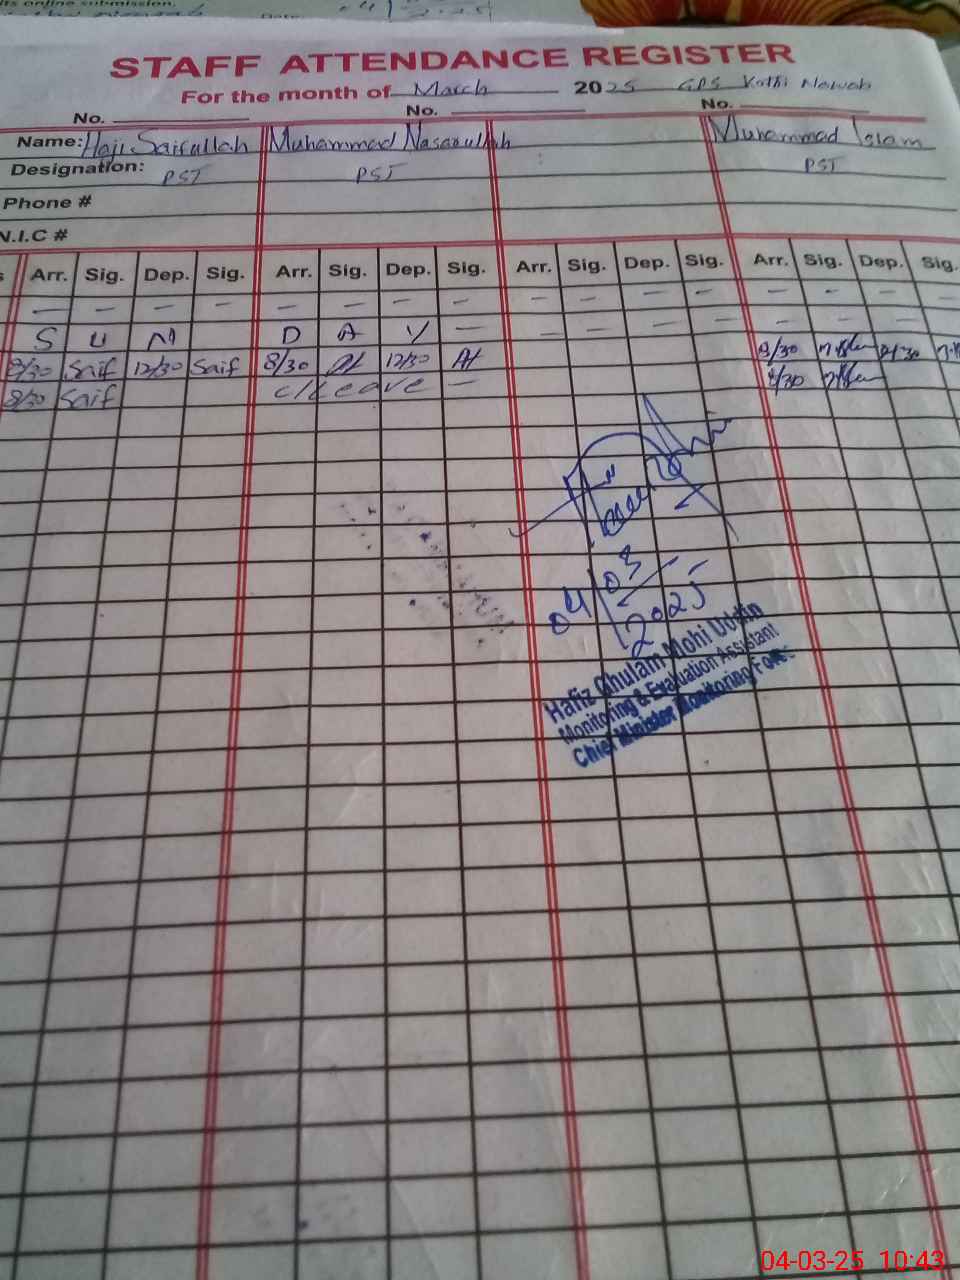 its online submission.
Date:
STAFF ATTENDANCE REGISTER
For the month of March 2025 GPS Kothi Nawab
No. No. No.
Name: Haji Saifullah Muhammad Nasaoullah Muhammad Islam
Designation: PST PST PST
Phone #
N.I.C #
Arr. Sig. Dep. Sig. Arr. Sig. Dep. Sig. Arr. Sig. Dep. Sig. Arr. Sig. Dep. Sig.
— — — — — — — — — — — — — — — —
S U N D A Y — — — — — — — — —
8/30 Saif 12/30 Saif 8/30 12/30 8/30
8/30 Saif c/Leave — 8/30
04/03/2025
Hafiz Ghulam Mohi Uddin
Monitoring & Evaluation Assistant
Chief Minister Monitoring Force
04-03-25 10:43